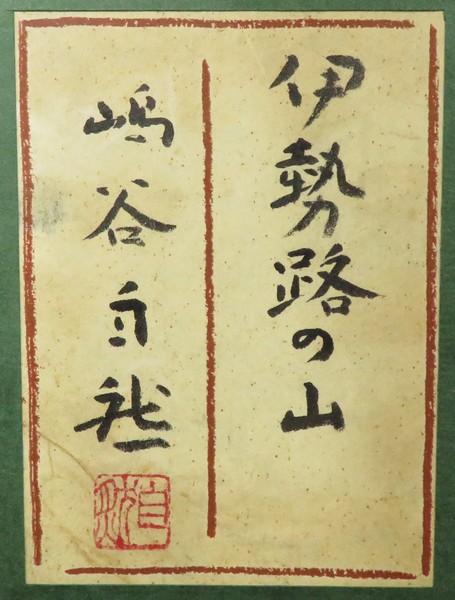 伊勢路の山
嶋谷自然
自然